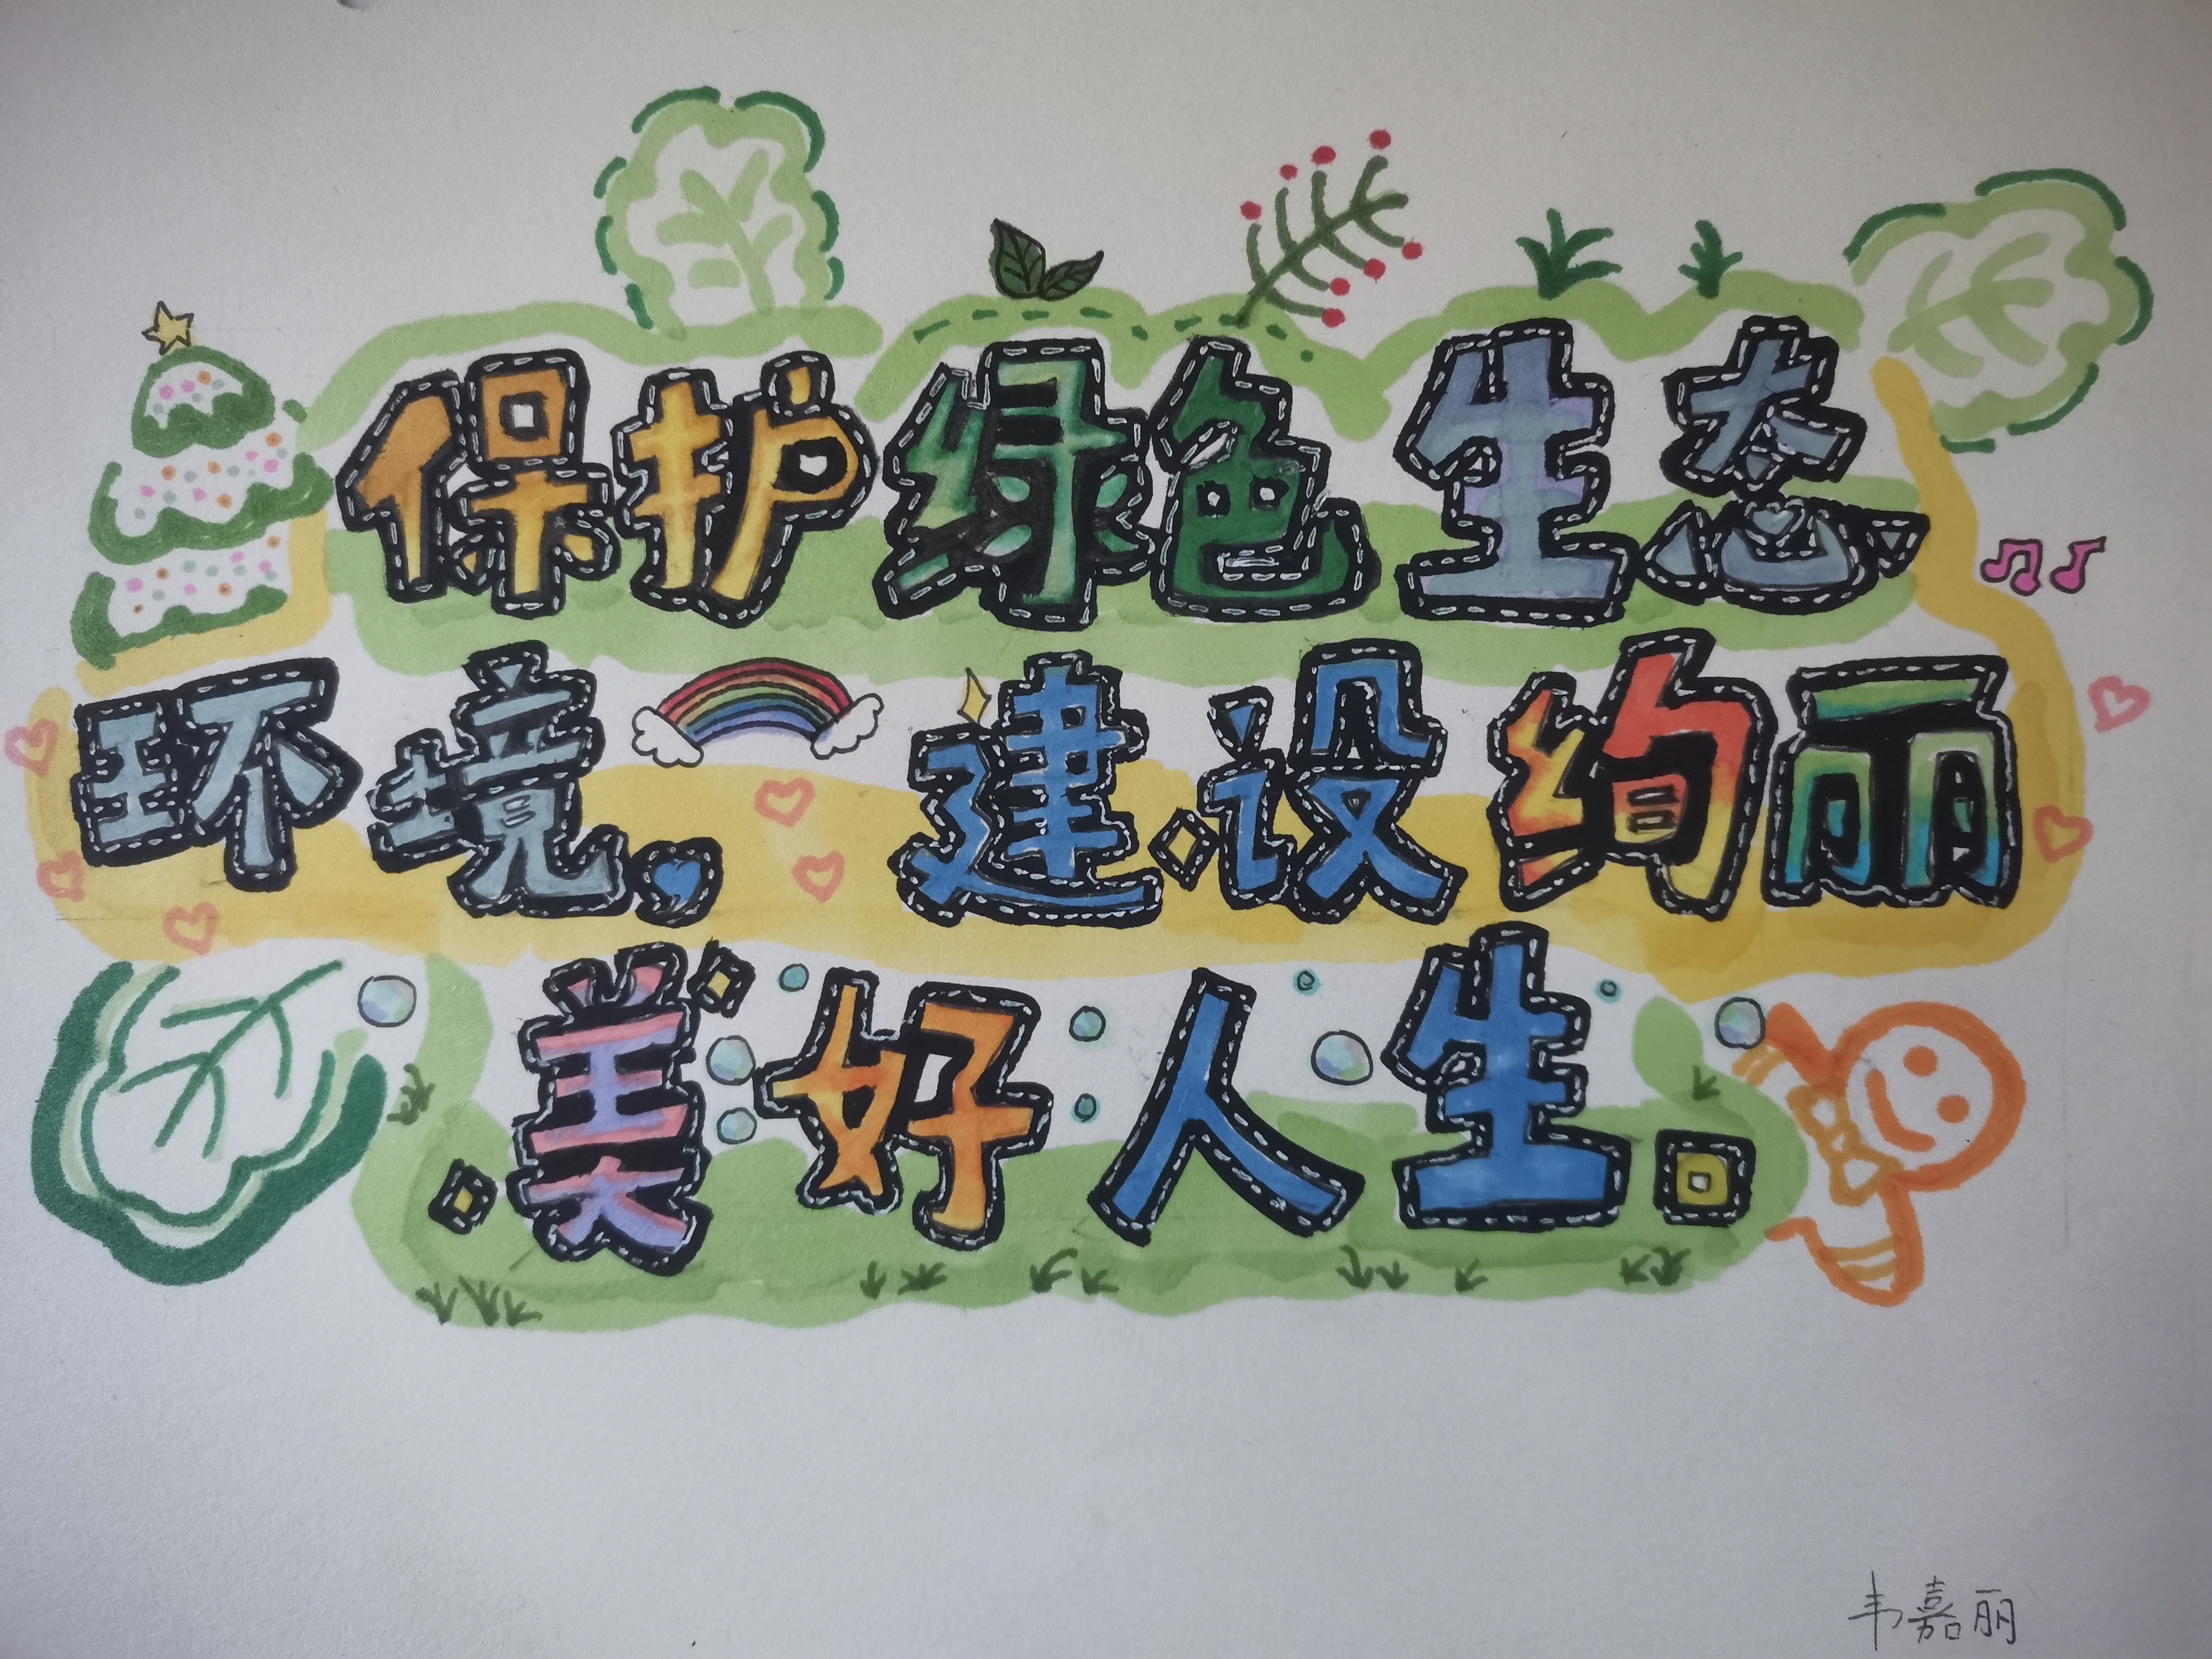 保护绿色生态
环境，建设绚丽
美好人生。
韦嘉丽